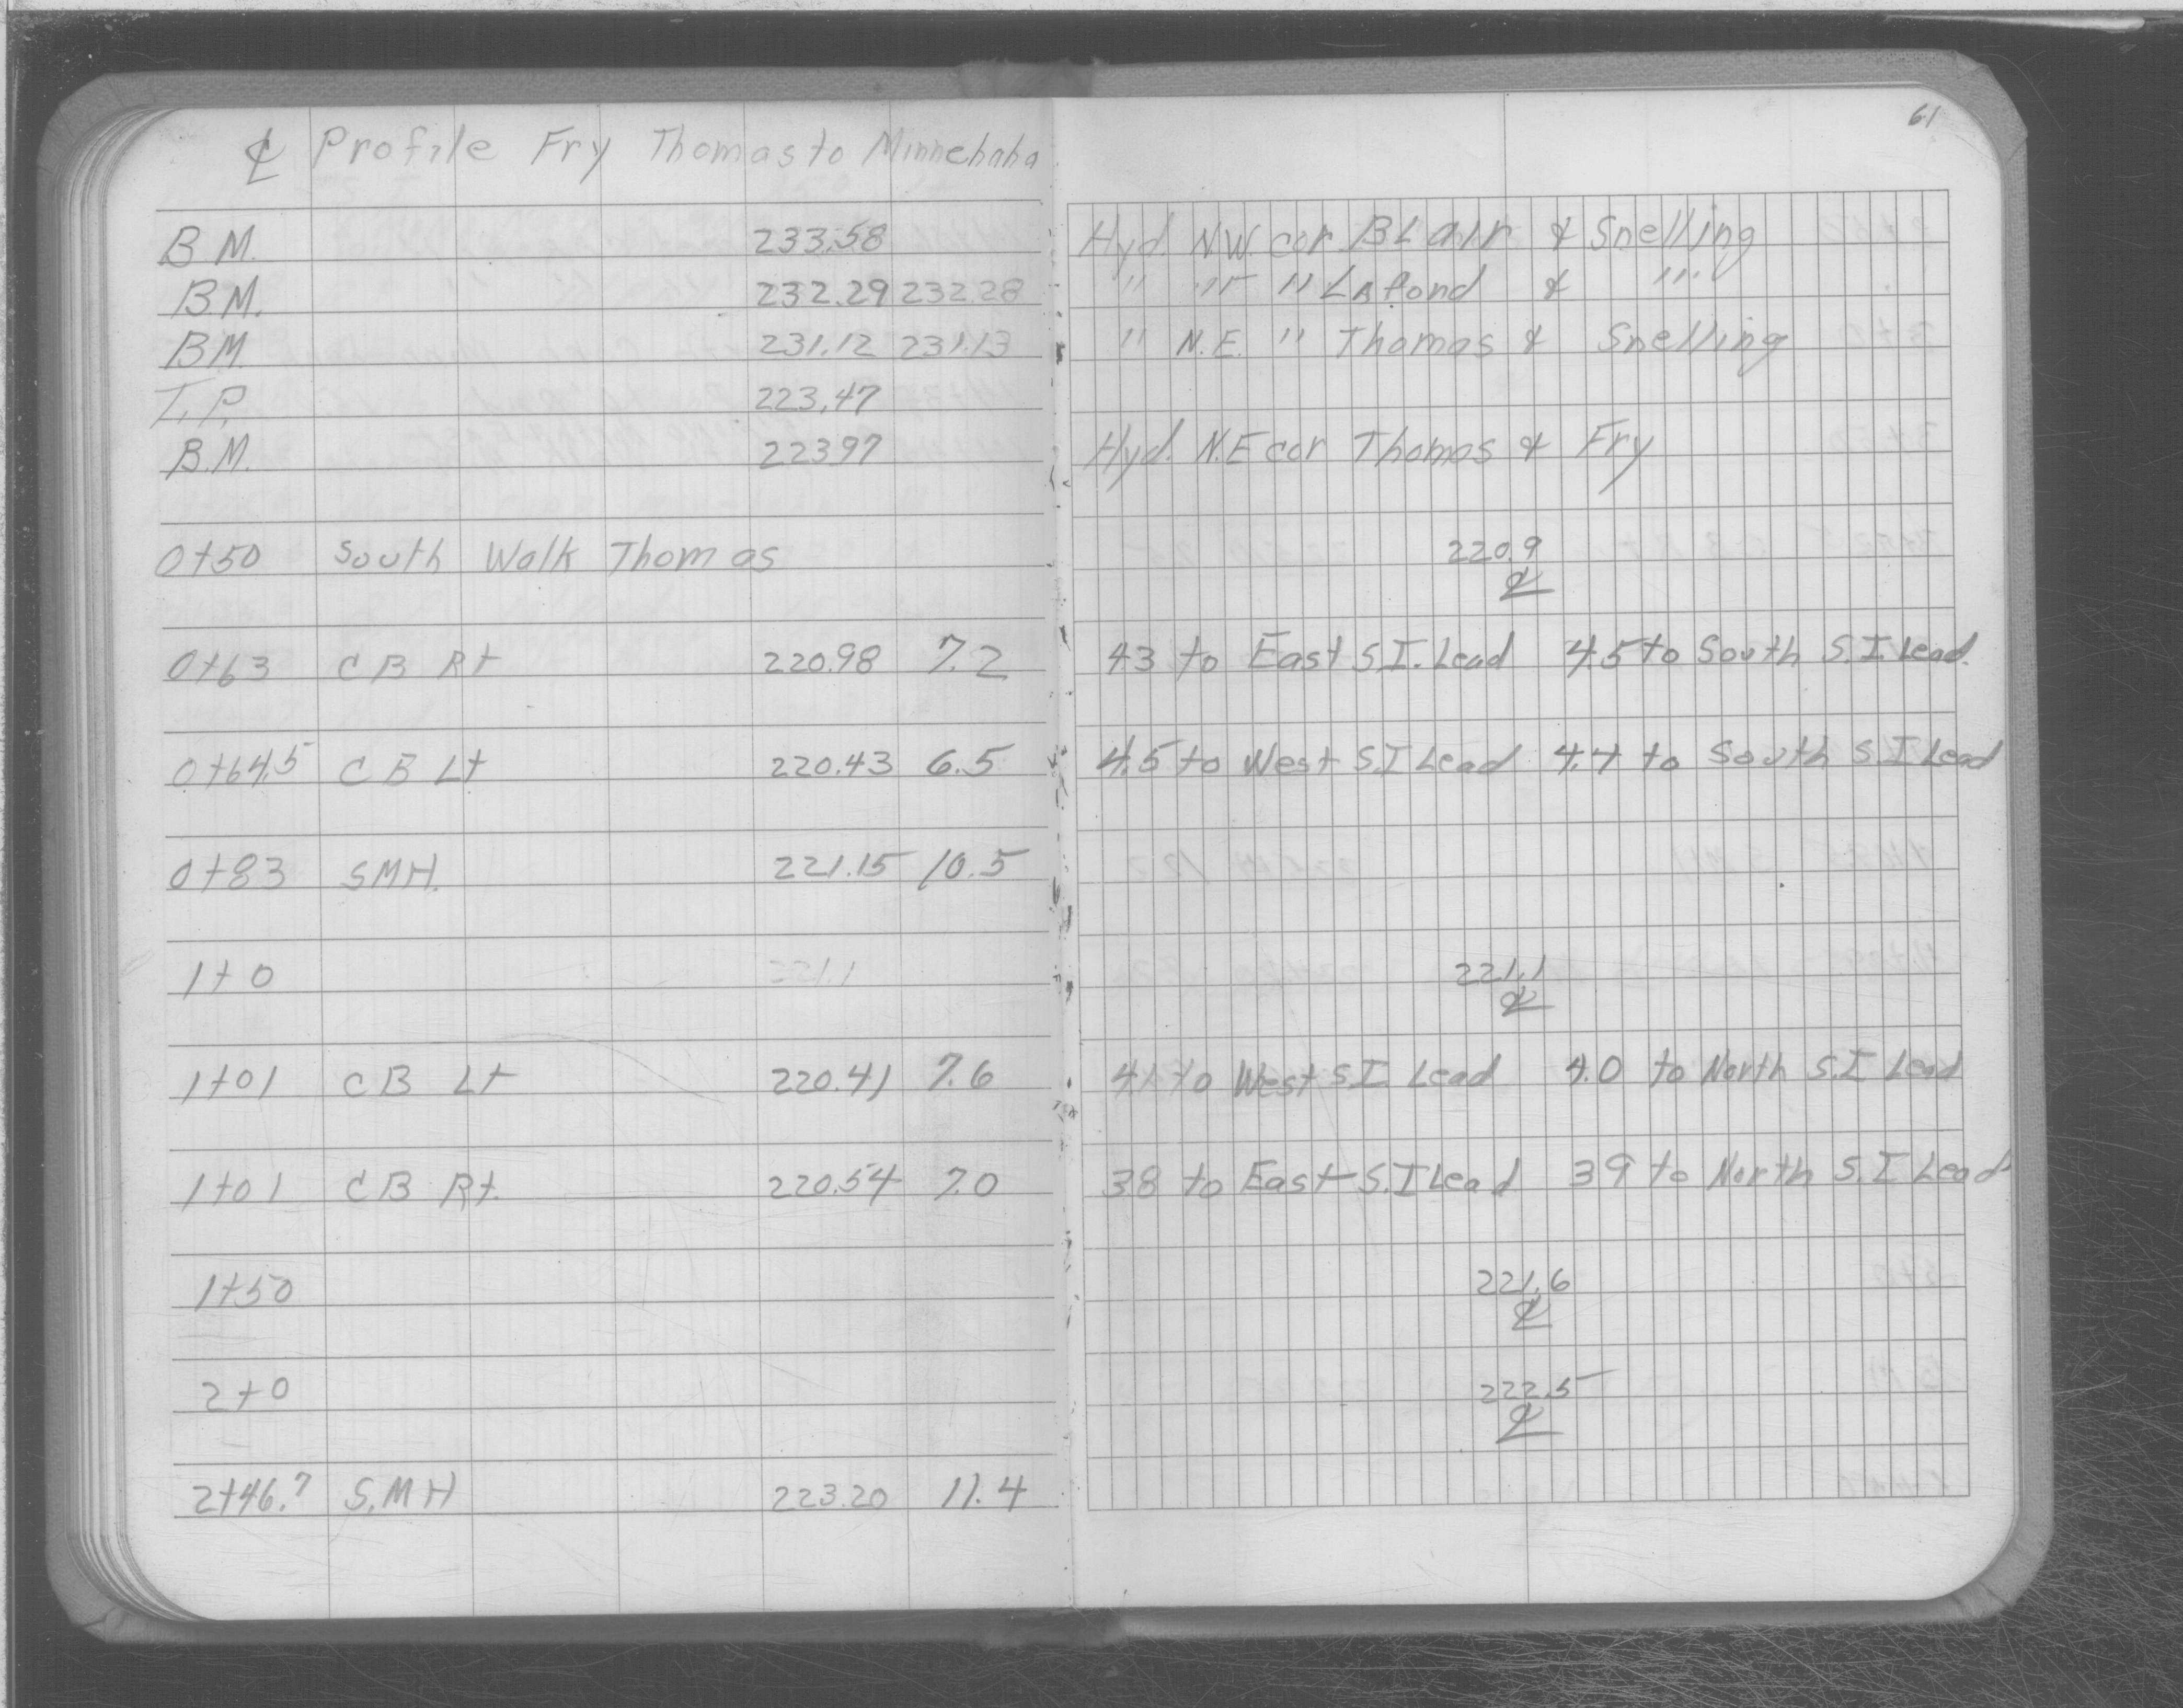 61
℄ Profile Fry Thomas to Minnehaha
B.M. 233.58 Hyd. N.W. cor BLair & Snelling
B.M. 232.29 232.28 " " " LaFond & "
BM. 231.12 231.13 " N.E. " Thomas & Snelling
T.P. 223.47
B.M. 22397 Hyd. N.E cor Thomas & Fry
0+50 South Walk Thomas 220.9
℄
0+63 CB Rt 220.98 7.2 43 to East S.I. Lead 4.5 to South S.I. Lead.
0+64.5 CB Lt 220.43 6.5 4.5 to West S.I Lead 4.4 to South S.I Lead
0+83 SMH. 221.15 10.5
1+0 221.1 221.1
℄
1+01 CB Lt 220.41 7.6 4.1 to West S.I. Lead 4.0 to North S.I Lead
1+01 CB Rt. 220.54 7.0 38 to East S.I Lead 39 to North S.I Lead
1+50 221.6
℄
2+0 222.5
℄
2+46.7 S.MH 223.20 11.4